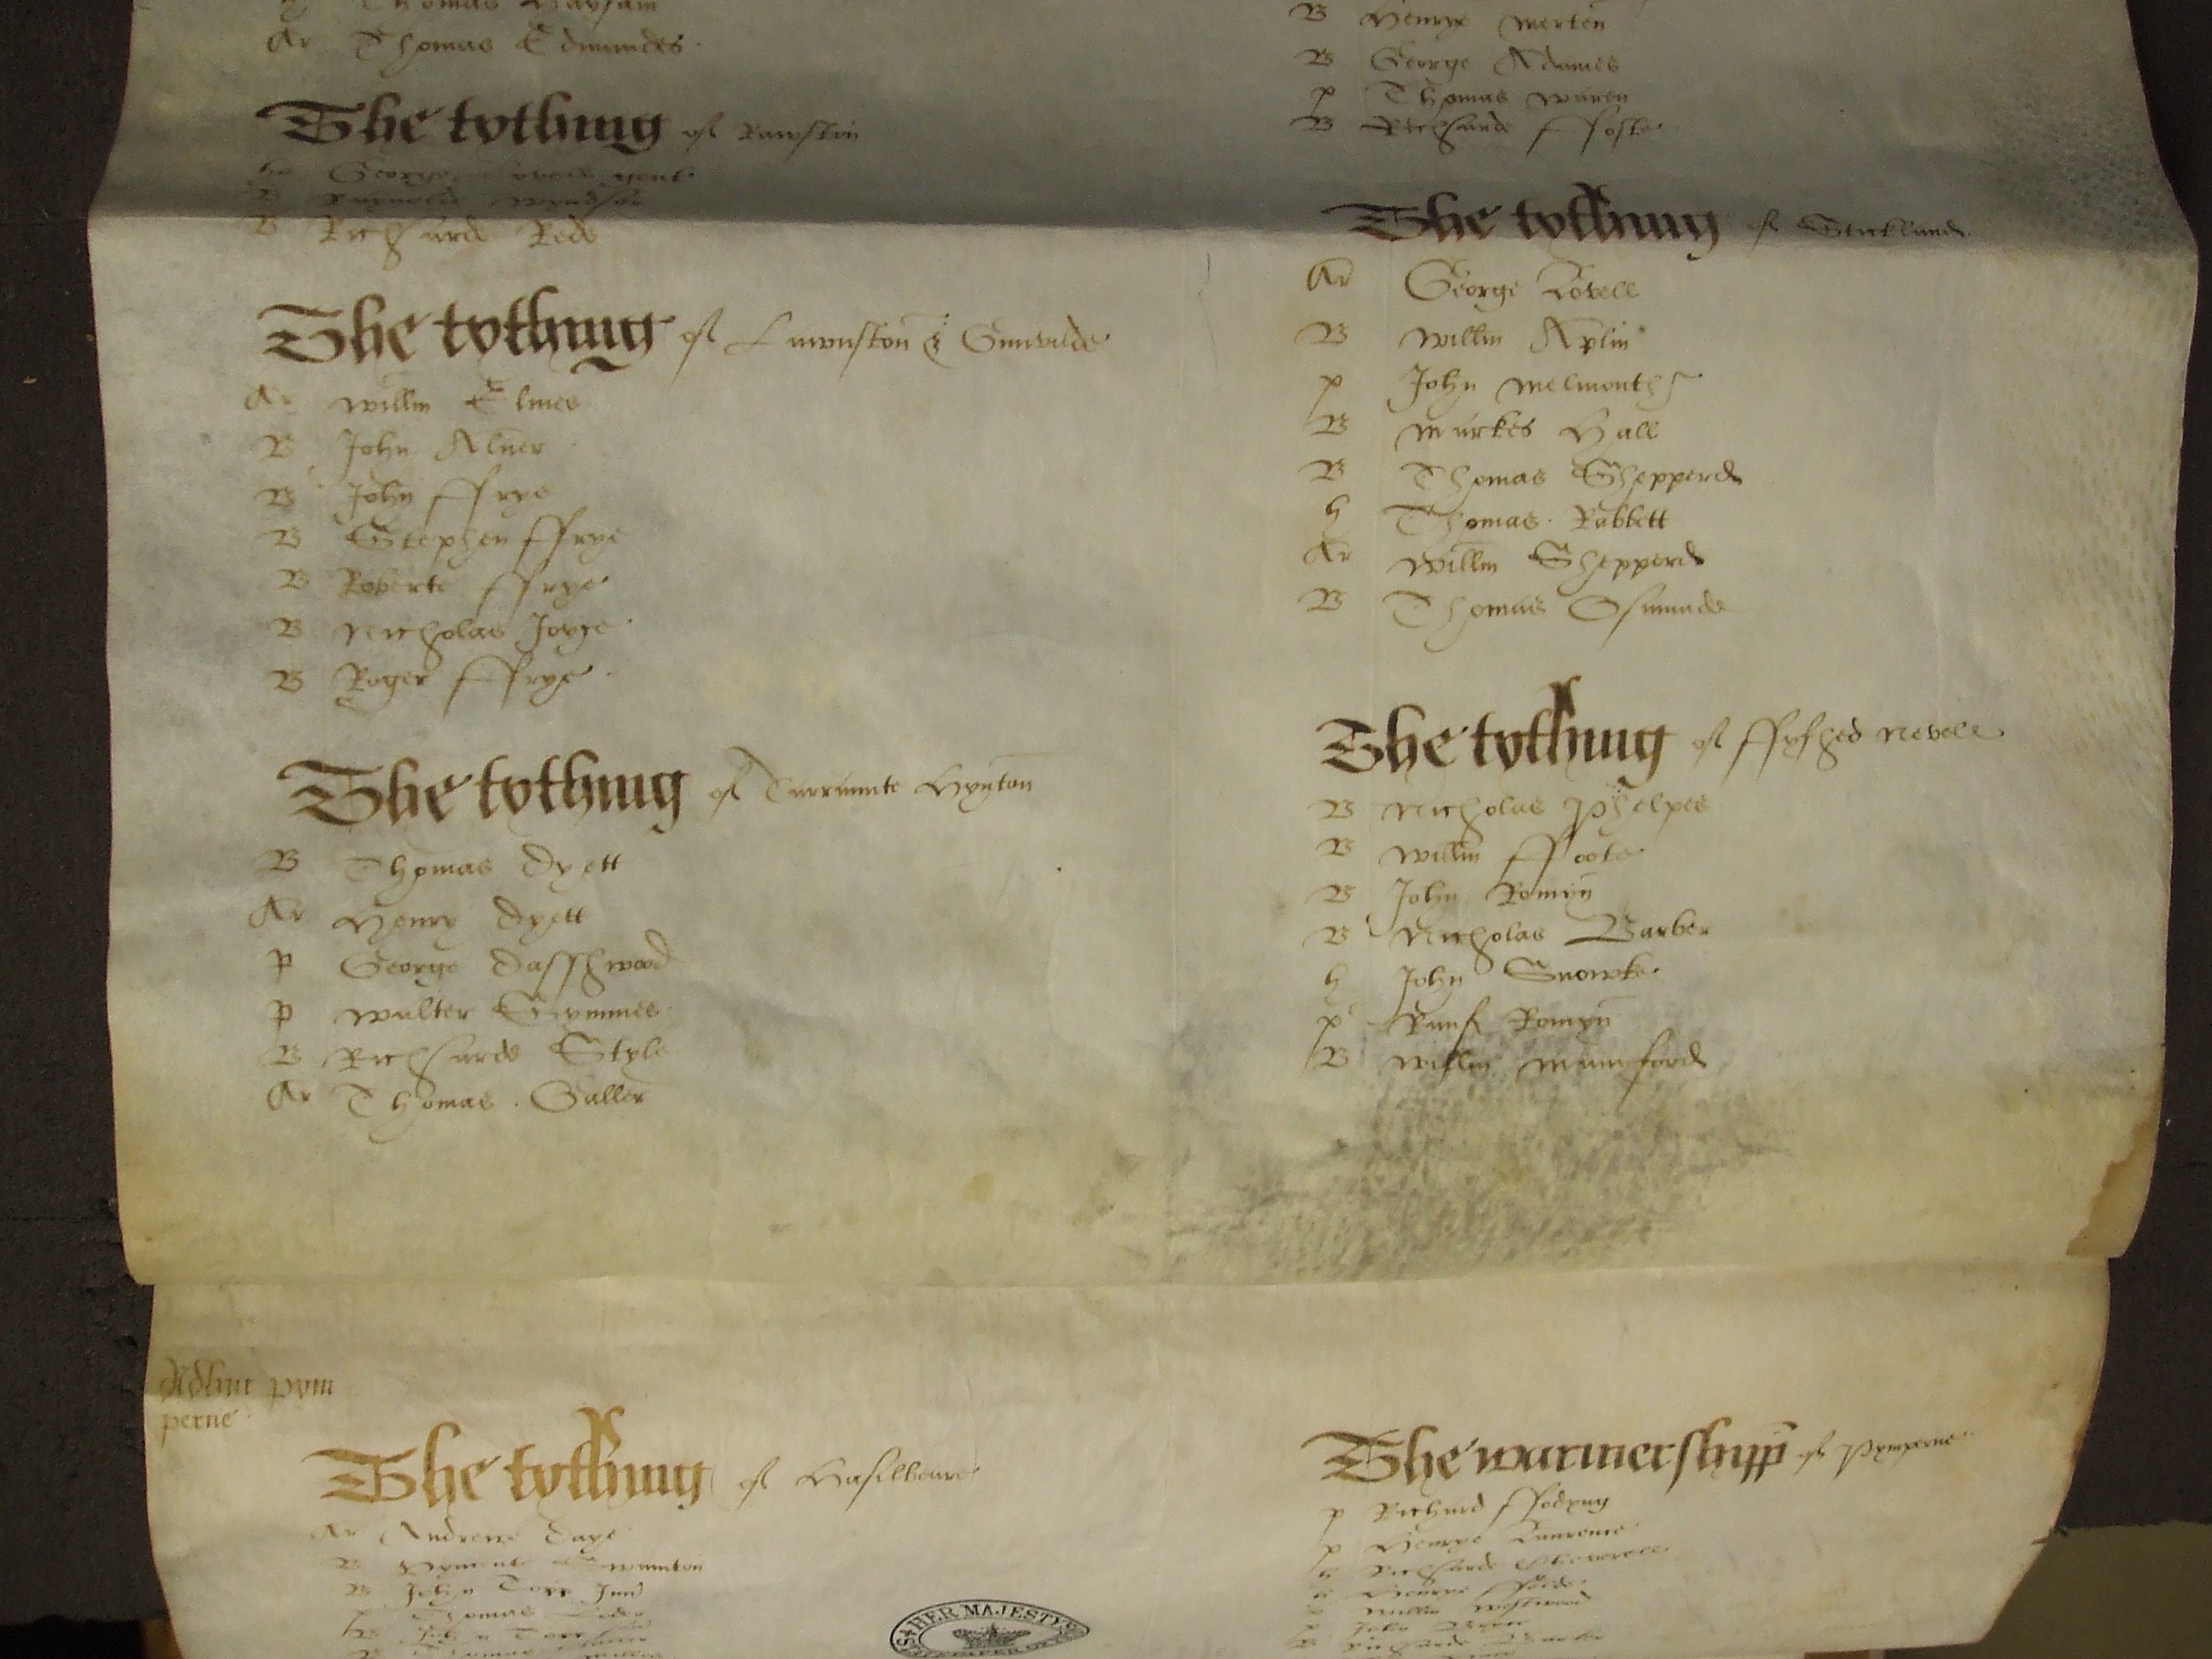 Thomas
Ar Thomas Edmundes
The tothing of Rawston
George gent
B Raynold Wyndsor
B Richarde Rede
The tothing of Launston & Gunvilde
Ar Willm Elmes
B John Alner
B John ffrye
B Stephen ffrye
B Roberte ffrye
B Nicholas Joyce
B Roger ffrye
The tothing of Tarrannte Hynton
B Thomas Dyett
Ar Henry Dyett
p George Dasshwood
p Walter Symmes
B Richarde Style
Ar Thomas Galler
B Henrye Merten
B George Adames
p Thomas Waren
B Richarde ffoste
The tothing of Sticklande
Ar George Lovell
B Willm Aplin
p John Melmonth
B Markes Hall
B Thomas Shepperd
h Thomas Rabbett
Ar Willm Shepperd
B Thomas Osmunde
The tothing of ffyfhed Nevell
B Nicholas Phelpes
B Willm ffoote
B John Romyn
B Nicholas Barber
h John Snowke
p Ranf Romyn
B Willm Mumford
Adhuc pym
perne
The tothing of Hasilbeare
Ar Andrewe Daye
B Swanton
B John
Thomas
The warnershipp of Pymperne
p Richard ffodyng
p Henrye Laurence
h Richarde
h
Willm Westwood
p John
B Richarde
HER MAJESTY'S